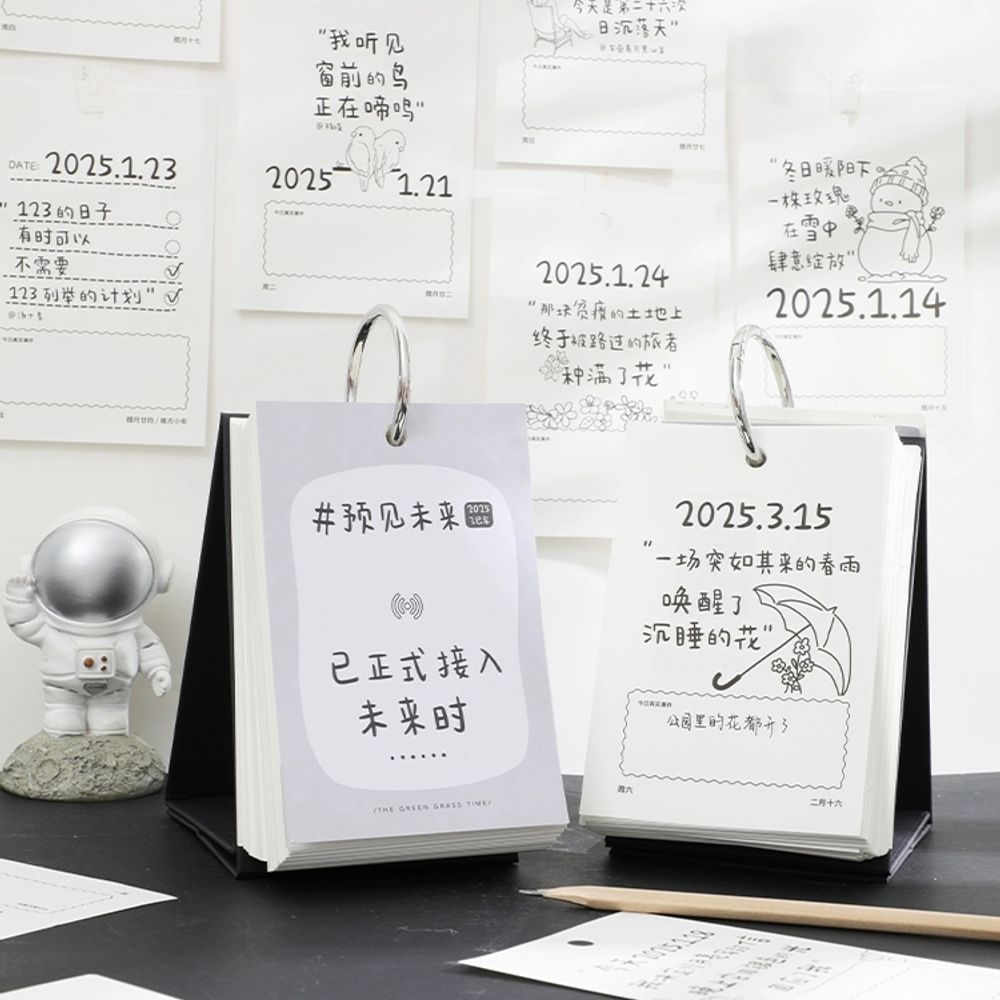 周四
腊月十七
"我听见
窗前的鸟
正在啼鸣"
2025 1.21
今日真实事件
周二
腊月廿二
今天是第二十六次
日沉落天"
今日真实事件
周日
腊月廿七
DATE: 2025.1.23
"123的日子
有时可以
不需要
123列举的计划"
今日真实事件
腊月廿四 / 南方小年
2025.1.24
"那块贫瘠的土地上
终于被路过的旅者
种满了花"
今日真实事件
"冬日暖阳下
一株玫瑰
在雪中
肆意绽放"
2025.1.14
今日真实事件
腊月十五
#预见未来 2025
乙巳年
已正式接入
未来时
······
/THE GREEN GRASS TIME/
2025.3.15
"一场突如其来的春雨
唤醒了
沉睡的花"
今日真实事件
公园里的花都开了
周六
二月十六